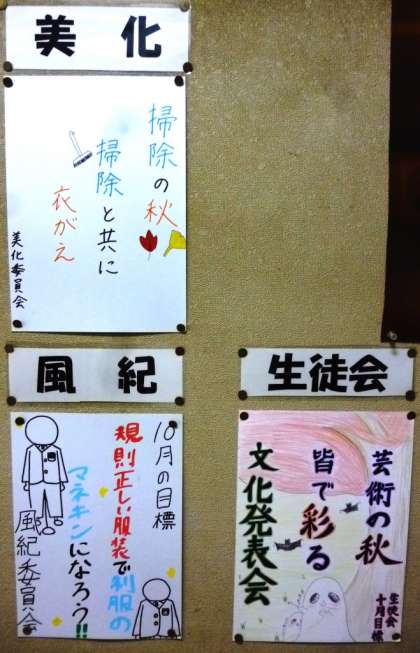 美化
掃除の秋
掃除と共に
衣がえ
美化委員会
風紀
10月の目標
規則正しい服装で制服の
マネキンになろう!!
風紀委員会
生徒会
芸術の秋
皆で彩る
文化発表会
生徒会
十月目標